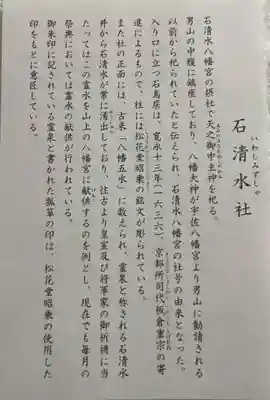 いわしみずしゃ
石清水社
石清水八幡宮の摂社で天之御中主神を祀る。
男山の中腹に鎮座しており、八幡大神が宇佐八幡宮より男山に勧請される
以前から祀られていたと伝えられ、石清水八幡宮の社号の由来となった。
入り口に立つ石鳥居は、寛永十三年(一六三六)、京都所司代板倉重宗の寄
進によるもので、柱には松花堂昭乗の銘文が彫られている。
また社の正面には、古来「八幡五水」に数えられ、霊泉と称される石清水
井から石清水が常に湧出しており、往古より皇室及び将軍家の御祈祷に当
たってはこの霊水を山上の八幡宮に献供するのを例とし、現在でも毎月の
祭典においては霊水の献供が行われている。
御朱印に記されている霊泉と書かれた瓢箪の印は、松花堂昭乗の使用した
印をもとに意匠している。